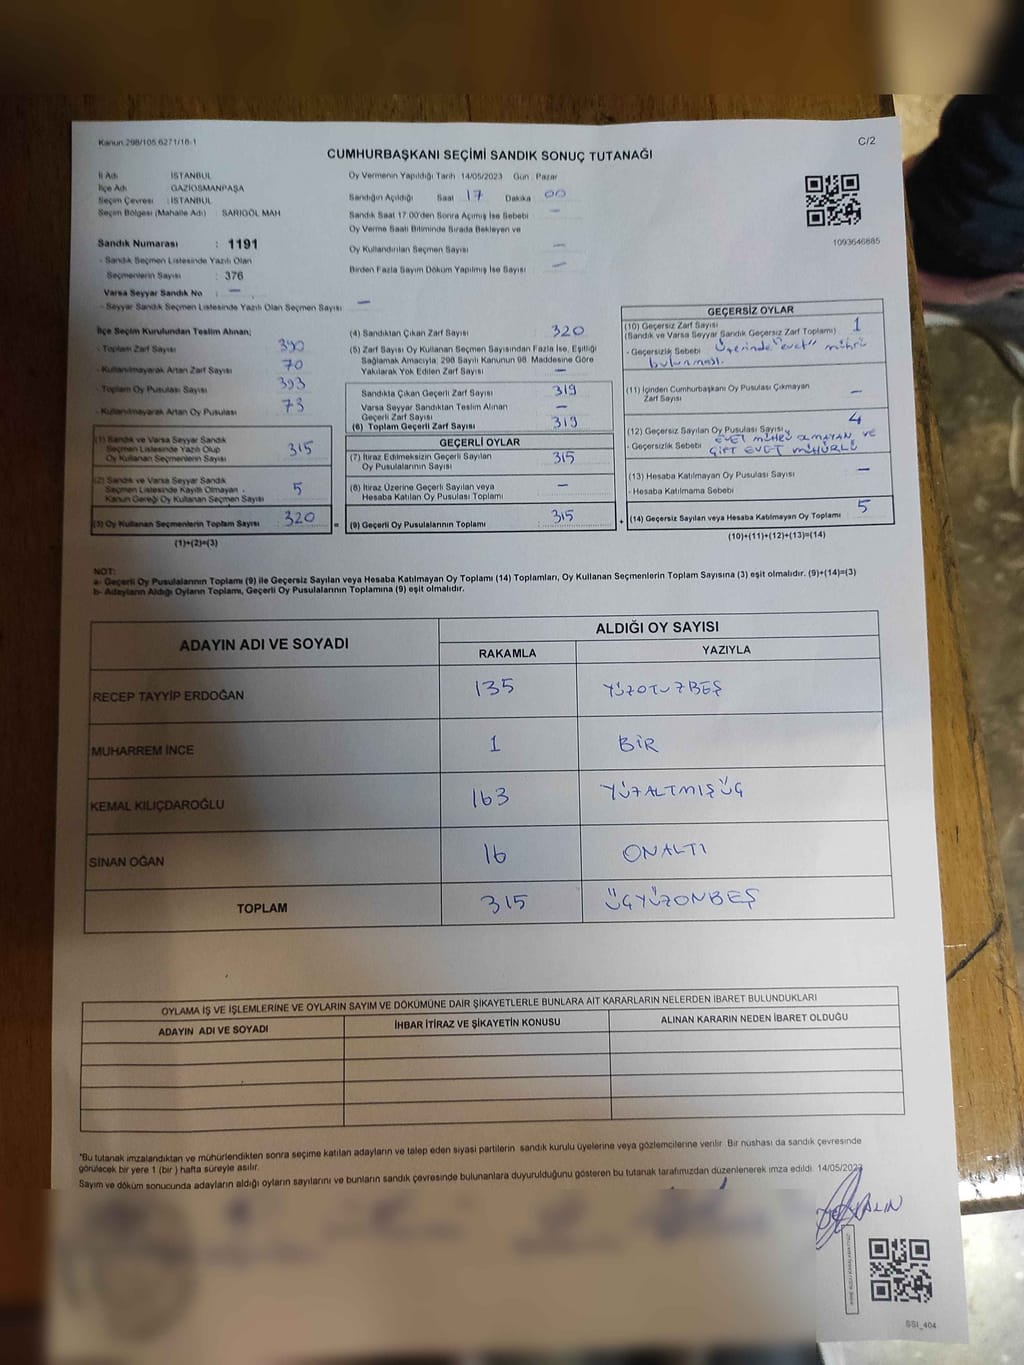 Kanun:298/105,6271/16-1
C/2
CUMHURBAŞKANI SEÇİMİ SANDIK SONUÇ TUTANAĞI
İl Adı : İSTANBUL
İlçe Adı : GAZİOSMANPAŞA
Seçim Çevresi : İSTANBUL
Seçim Bölgesi (Mahalle Adı) : SARIGÖL MAH
Sandık Numarası : 1191
- Sandık Seçmen Listesinde Yazılı Olan
Seçmenlerin Sayısı : 376
Varsa Seyyar Sandık No : –
- Seyyar Sandık Seçmen Listesinde Yazılı Olan Seçmen Sayısı : –
Oy Vermenin Yapıldığı Tarih : 14/05/2023 Gün : Pazar
Sandığın Açıldığı Saat 17 Dakika 00
Sandık Saat 17.00'den Sonra Açımış İse Sebebi –
Oy Verme Saati Bitiminde Sırada Bekleyen ve
Oy Kullandırılan Seçmen Sayısı –
Birden Fazla Sayım Döküm Yapılmış İse Sayısı –
1093646685
İlçe Seçim Kurulundan Teslim Alınan;
- Toplam Zarf Sayısı 390
- Kullanılmayarak Artan Zarf Sayısı 70
- Toplam Oy Pusulası Sayısı 393
- Kullanılmayarak Artan Oy Pusulası 73
(1) Sandık ve Varsa Seyyar Sandık
Seçmen Listesinde Yazılı Olup
Oy Kullanan Seçmenlerin Sayısı 315
(2) Sandık ve Varsa Seyyar Sandık
Seçmen Listesinde Kayıtlı Olmayan -
Kanun Gereği Oy Kullanan Seçmen Sayısı 5
(3) Oy Kullanan Seçmenlerin Toplam Sayısı 320 =
(1)+(2)=(3)
(4) Sandıktan Çıkan Zarf Sayısı 320
(5) Zarf Sayısı Oy Kullanan Seçmen Sayısından Fazla İse, Eşitliği
Sağlamak Amacıyla, 298 Sayılı Kanunun 98. Maddesine Göre
Yakılarak Yok Edilen Zarf Sayısı –
Sandıkta Çıkan Geçerli Zarf Sayısı 319
Varsa Seyyar Sandıktan Teslim Alınan
Geçerli Zarf Sayısı –
(6) Toplam Geçerli Zarf Sayısı 319
GEÇERLİ OYLAR
(7) İtiraz Edilmeksizin Geçerli Sayılan
Oy Pusulalarının Sayısı 315
(8) İtiraz Üzerine Geçerli Sayılan veya
Hesaba Katılan Oy Pusulası Toplamı –
(9) Geçerli Oy Pusulalarının Toplamı 315 +
GEÇERSİZ OYLAR
(10) Geçersiz Zarf Sayısı
(Sandık ve Varsa Seyyar Sandık Geçersiz Zarf Toplamı) 1
- Geçersizlik Sebebi Üzerinde "evet" mührü
bulunması.
(11) İçinden Cumhurbaşkanı Oy Pusulası Çıkmayan
Zarf Sayısı –
(12) Geçersiz Sayılan Oy Pusulası Sayısı 4
- Geçersizlik Sebebi EVET MÜHRÜ OLMAYAN VE
ÇİFT EVET MÜHÜRLÜ
(13) Hesaba Katılmayan Oy Pusulası Sayısı –
- Hesaba Katılmama Sebebi
(14) Geçersiz Sayılan veya Hesaba Katılmayan Oy Toplamı 5
(10)+(11)+(12)+(13)=(14)
NOT:
a- Geçerli Oy Pusulalarının Toplamı (9) ile Geçersiz Sayılan veya Hesaba Katılmayan Oy Toplamı (14) Toplamları, Oy Kullanan Seçmenlerin Toplam Sayısına (3) eşit olmalıdır. (9)+(14)=(3)
b- Adayların Aldığı Oyların Toplamı, Geçerli Oy Pusulalarının Toplamına (9) eşit olmalıdır.
ADAYIN ADI VE SOYADI
ALDIĞI OY SAYISI
RAKAMLA YAZIYLA
RECEP TAYYİP ERDOĞAN 135 YÜZOTUZBEŞ
MUHARREM İNCE 1 BİR
KEMAL KILIÇDAROĞLU 163 YÜZALTMIŞÜÇ
SİNAN OĞAN 16 ONALTI
TOPLAM 315 ÜÇYÜZONBEŞ
OYLAMA İŞ VE İŞLEMLERİNE VE OYLARIN SAYIM VE DÖKÜMÜNE DAİR ŞİKAYETLERLE BUNLARA AİT KARARLARIN NELERDEN İBARET BULUNDUKLARI
ADAYIN ADI VE SOYADI İHBAR İTİRAZ VE ŞİKAYETİN KONUSU ALINAN KARARIN NEDEN İBARET OLDUĞU
*Bu tutanak imzalandıktan ve mühürlendikten sonra seçime katılan adayların ve talep eden siyasi partilerin sandık kurulu üyelerine veya gözlemcilerine verilir. Bir nüshası da sandık çevresinde
görülecek bir yere 1 (bir ) hafta süreyle asılır.
Sayım ve döküm sonucunda adayların aldığı oyların sayılarını ve bunların sandık çevresinde bulunanlara duyurulduğunu gösteren bu tutanak tarafımızdan düzenlenerek imza edildi. 14/05/2023
SSI_404